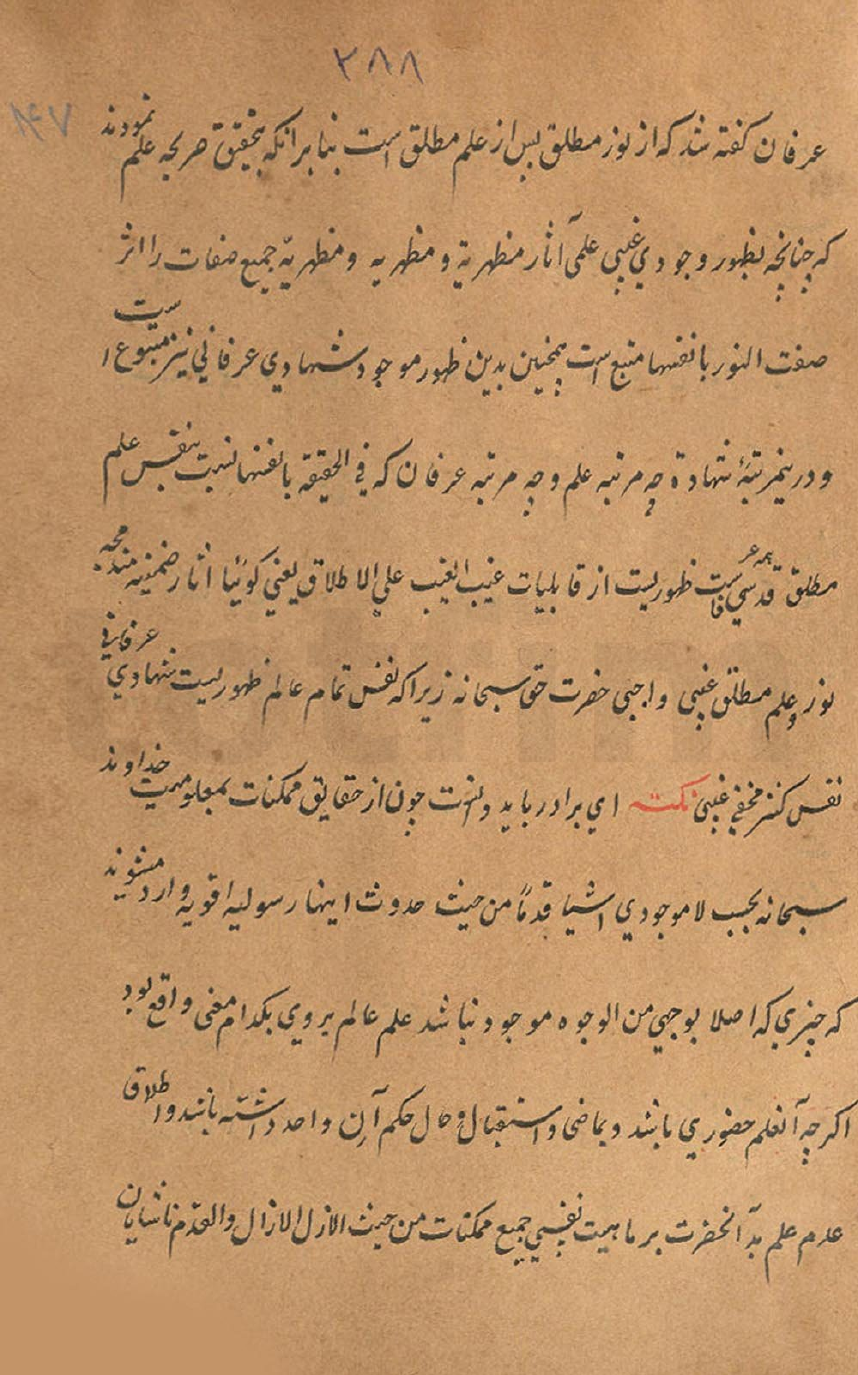 ۲۸۸
۸۴۷
عرفان کفته شد که از نور مطلق پس از علم مطلق است بنا بر انکه بتحقیق هر یجه علم نمودند
که چنانچه بظهور وجودي غیبی علمی آثار منظهریة و مظهریه و مظهریهٔ جمیع صفات را اثر
صفت النور بانفسها منبع است همچنین بدین ظهور موجود شهادي عرفانی نیز متبوع است
و درینمرتبهٔ شهادة چه مرتبه علم و چه مرتبه عرفان که في الحقیقة بانفسها نسبت بنفس علم
مطلق قدسی است همه عرفا ظهوریست از قابلیات غیب الغیب علي الاطلاق یعني کوئیا اثار ضمنیه مندمجه
نور و علم مطلق غیبی واجبی حضرت حق سبحانه زیرا که نفس تمام عالم ظهوریست شهادي عرفانی
نفس کنز مخفي غیبی نکته اي برادر باید دانست چون از حقایق ممکنات بمعلومیت خداوند
سبحانه بحسب لا موجودي اشیا قدماً من حیث حدوث اینها رسولیه اقویه وارد میشوند
که چیزي که اصلا بوجهي من الوجوه موجود نباشد علم عالم بروي بکدام معنی واقع بود
اکرچه آنعلم حضوري باشد و بماضی و استقبال و حال حکم آن واحد داشته باشد و اطلاق
عدم علم بدآنحضرت بر ماهیت بنفسي جمیع ممکنات من حیث الازل الازال و القدم ناشایان